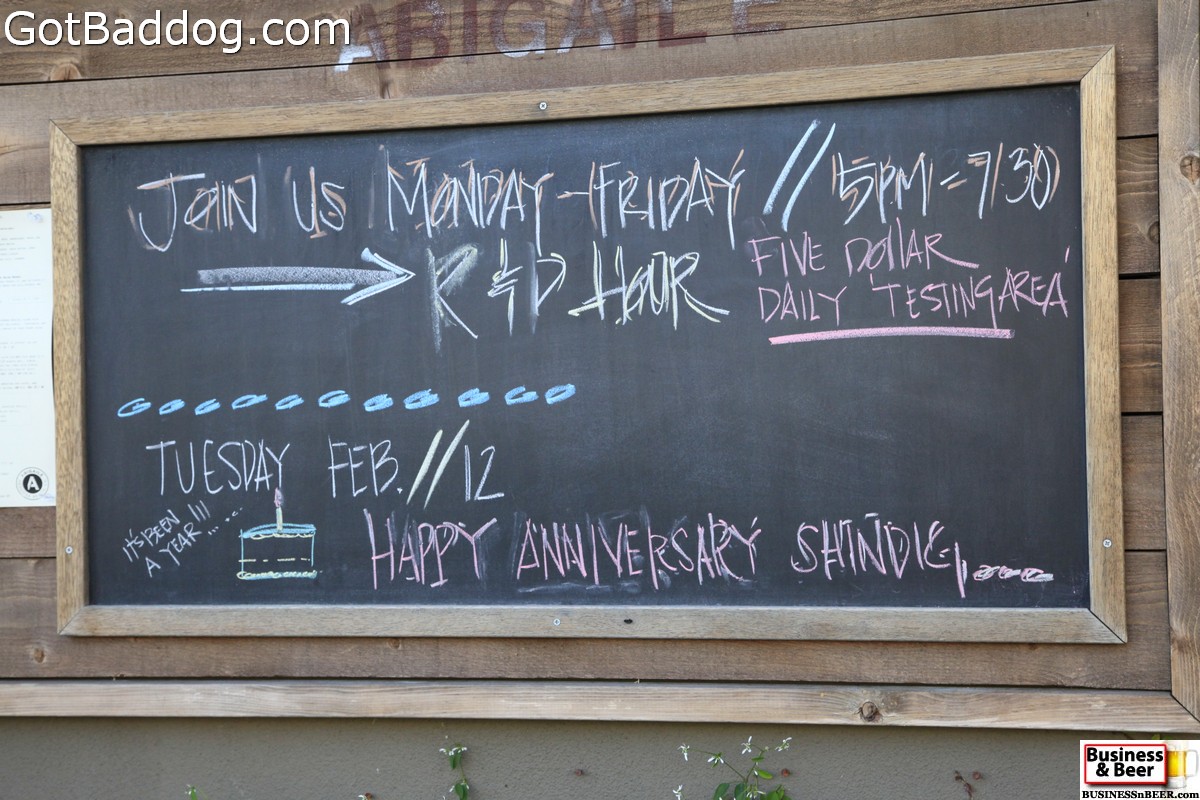 GotBaddog.com
ABIGAILE
JOIN US MONDAY-FRIDAY // 5PM-7/30
R & D HOUR
FIVE DOLLAR
DAILY 'TESTING AREA'
TUESDAY FEB. // 12
IT'S BEEN
A YEAR!!!...
HAPPY ANNIVERSARY SHINDIG
A
Business
& Beer
BUSINESSnBEER.com